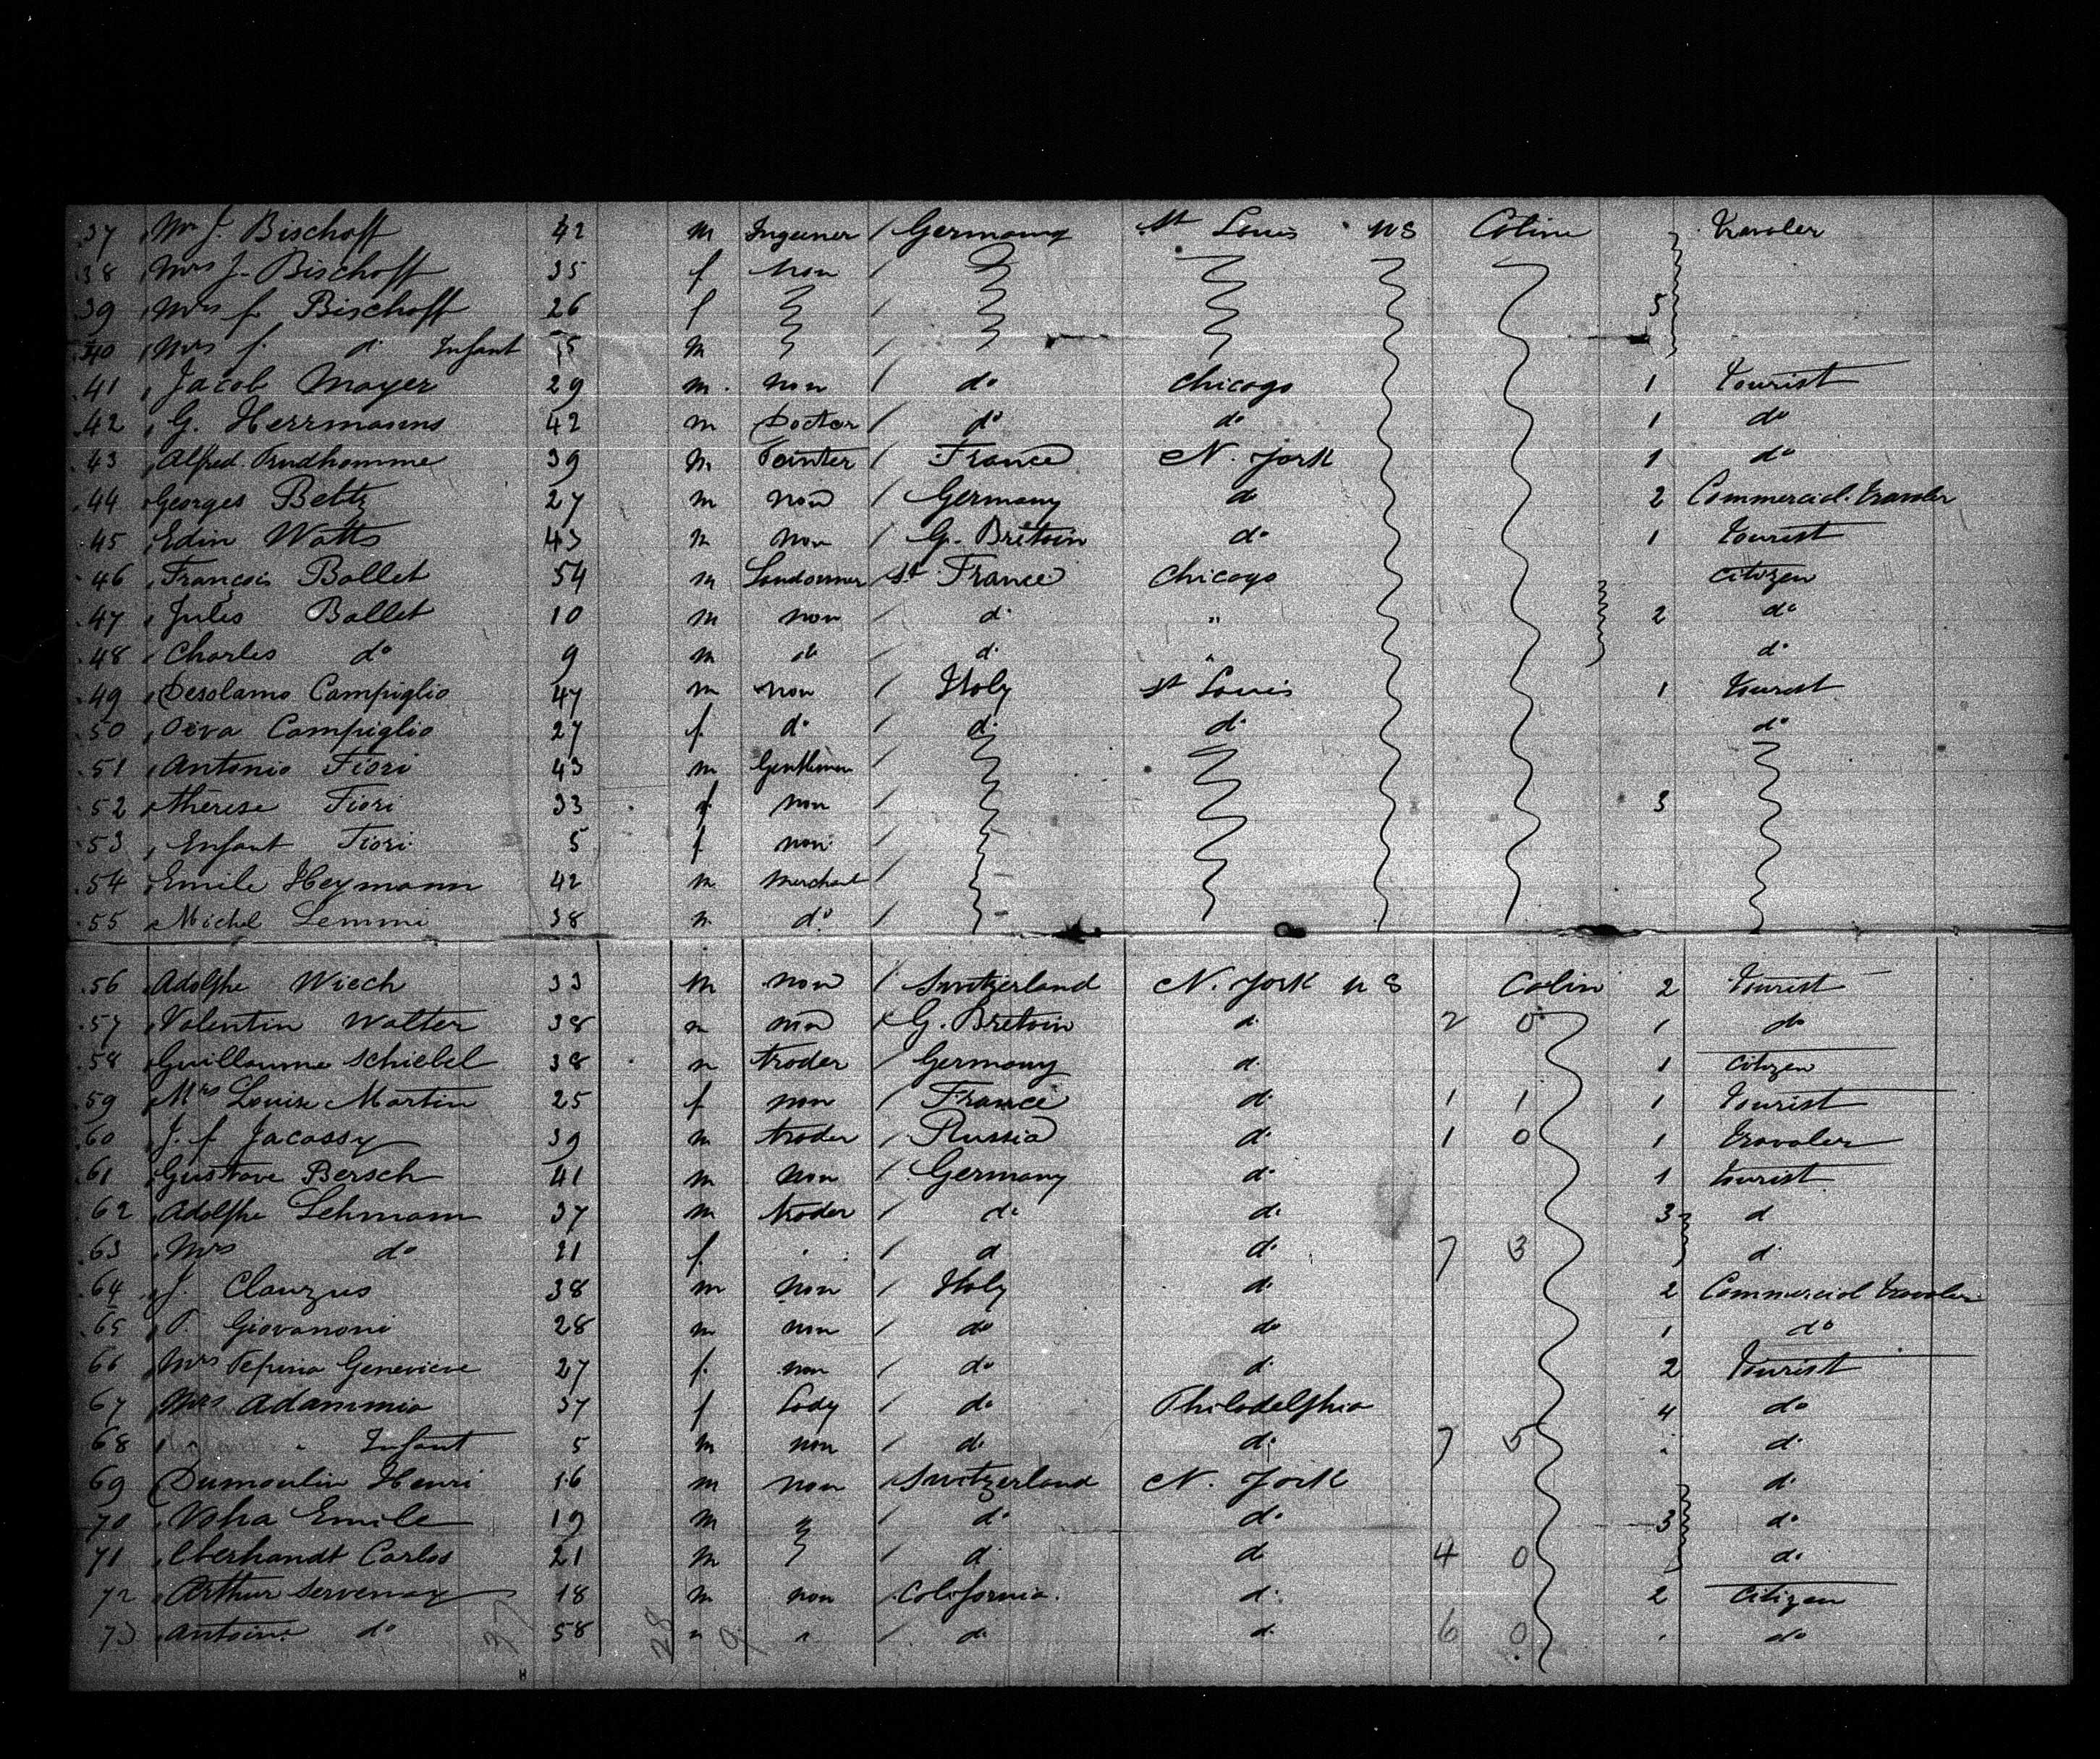 37 Mr J. Bischoff 42 m Ingeener / Germany St Louis US Cabine Traveler
38 Mrs J. Bischoff 35 f non /
39 Mrs f. Bischoff 26 f / 5
40 Mrs f. do Infant 5 m /
41 Jacob Mayer 29 m. non / do Chicago 1 tourist
42 G. Herrmanns 42 m Doctor / do do 1 do
43 Alfred Prudhomme 39 m Painter / France N. York 1 do
44 Georges Beltz 27 m non / Germany do 2 Commercial Traveler
45 Edin Watts 43 m non / G. Britain do 1 tourist
46 François Ballet 54 m / France Chicago citizen
47 Jules Ballet 10 m non / do " 2 do
48 Charles do 9 m do / do " do
49 Desolamo Campiglio 47 m non / Italy St Louis 1 tourist
50 Diva Campiglio 27 f. do / do do do
51 Antonio Fiori 43 m Gentleman /
52 Thérese Fiori 33 f non / 3
53 Enfant Fiori 5 f non /
54 Emile Heymann 42 m merchant /
55 Michel Lemmi 38 m do /
56 Adolphe Wiech 33 m non / Switzerland N. York US Cabin 2 tourist
57 Valentin Walter 38 m non / G. Britain do 2 0 1 do
58 Guillaume Schiebel 38 m trader / Germany do 1 citizen
59 Mrs Louise Martin 25 f non / France do 1 1 1 tourist
60 J. f. Jacassy 39 m trader / Russia do 1 0 1 traveler
61 Gustave Bersch 41 m non / Germany do 1 tourist
62 Adolphe Lehmann 37 m trader / do do 3 d
63 Mrs do 21 f. / d do 7 3 d
64 J. Clauzus 38 m non / Italy do 2 Commercial traveler
65 P. Giovanoni 28 m non / do do 1 do
66 Mrs Geneviève 27 f. non / do do 2 tourist
67 Mrs Adammia 37 f Lady / do Philadelphia 4 do
68 " " Infant 5 m non / do do 7 5 " do
69 Dumoulin Henri 16 m non / Switzerland N. York do
70 Emile 19 m / do do 3 do
71 Eberhandt Carlos 21 m / d d 4 0 do
72 Arthur Servenay 18 m non / California. do 2 citizen
73 Antoine do 58 " " / do do 6 0 " do
37 28 9